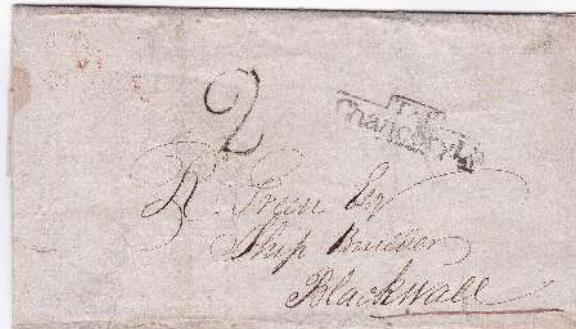 2
T.P
Chancery Ln
R. Green Esq
Ship Builder
Blackwall